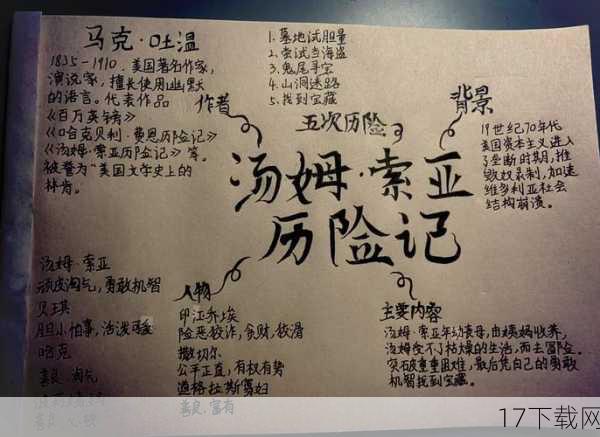 马克·吐温
1835-1910，美国著名作家，
演说家，擅长使用幽默
的语言。代表作品
《百万英镑》
《哈克贝利·费恩历险记》
《汤姆·索亚历险记》等。
被誉为“美国文学史上的
林肯。
作者
1.墓地试胆量
2.尝试当海盗
3.鬼屋寻宝
4.山洞迷路
5.找到宝藏
五次历险
背景
19世纪70年代
美国资本主义进入
了垄断时期，推
毁奴录制，加速
维多利亚社会
结构崩溃。
汤姆·索亚
历险记
人物
汤姆·索亚
顽皮淘气，勇敢机智
贝琪
胆小怕事，活泼
哈克
善良 淘气
印江乔·埃
险恶狡诈，贪财，狡猾
撒切尔
公平正直，有权有势
道格拉斯寡妇
善良·富有
主要内容
汤姆·索亚年幼丧母，由姨妈收养，
汤姆受不了枯燥的生活，而去冒险。
突破重重困难，最后凭自己的勇敢
机智找到宝藏。
17下载网